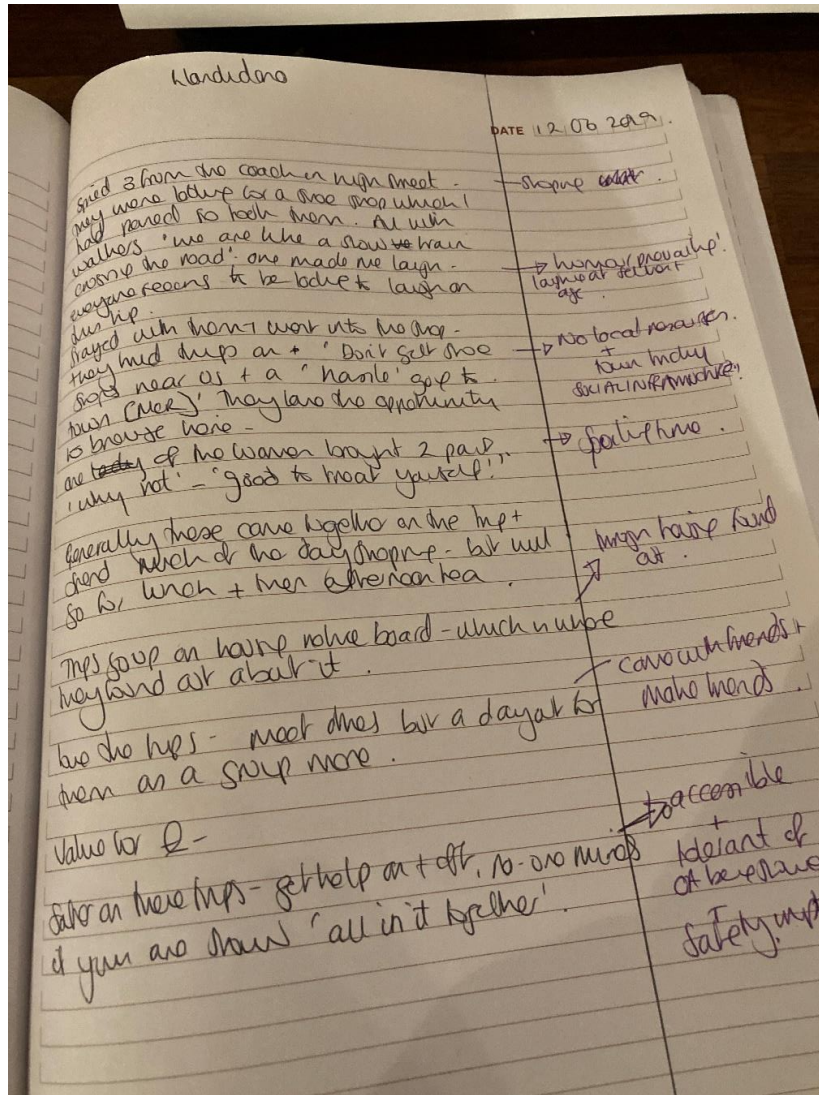 Llandudno
DATE 12 06 2019.
Spied 3 from the coach in high street.
they were looking for a shoe shop which I
had passed so took them. All with
walkers 'we are like a slow train
crossing the road'. one made me laugh.
everyone seems to be able to laugh on
this trip.
Stayed with them + went into the shop.
they had on + 'Don't get shoe
shops near us + a 'hassle' going to
town (MCR)' They love the opportunity
to browse here -
one of the women bought 2 pairs,
'why not' - 'good to treat yourself!'
Generally these come together on the trip +
spend much of the day shopping - but will
go for lunch + then afternoon tea.
Trips go up on housing notice board - which is where
they found out about it.
love the trips - meet others but a day out for
them as a group more.
Value for £ -
Safer on these trips - get help on + off, no-one minds
if you are slow 'all in it together'.
shopping
humour prevailing!
laughing at
age.
No local resources.
+
town tricky
SOCIAL INFRASTRUCTURE!
Spoiling time.
through housing found
out.
come with friends +
make friends.
accessible
+
tolerant of
other
+
Safety imp